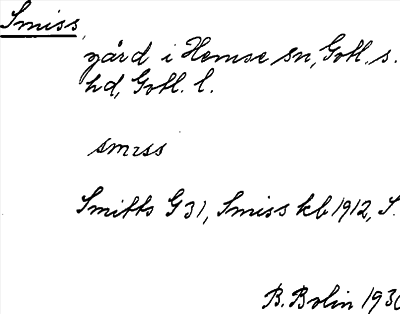 Smiss,
gård i Hemse sn, Gotl. s.
hd, Gotl. l.
smɪss
Smitts G 31, Smiss kb 1912, S.
B. Bolin 193